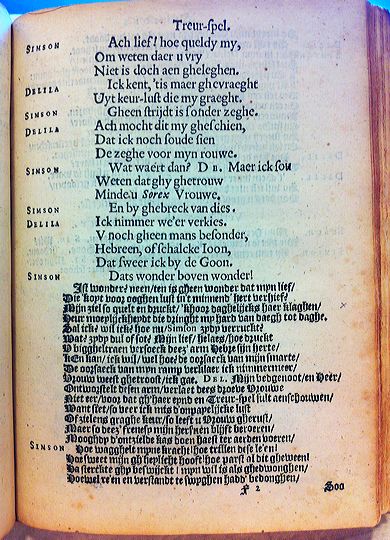 Treur-spel.
SIMSON Ach lief! hoe queldy my,
Om weten daer u vry
Niet is doch aen gheleghen.
DELILA Ick kent, 'tis maer ghevraeght
Uyt keur-lust die my graeght.
SIMSON Gheen strijdt is sonder zeghe.
DELILA Ach mocht dit my gheschien,
Dat ick noch soude sien
De zeghe voor myn rouwe.
SIMSON Wat waert dan? DE. Maer ick sou
Weten dat ghy ghetrouw
Mind e/u Sorex Vrouwe.
SIMSON En by ghebreck van dies.
DELILA Ick nimmer we'er verkies.
V noch gheen mans besonder,
Hebreen, of schalcke Ioon,
Dat sweer ick by de Goon.
SIMSON Dats wonder boven wonder!
Ist wonder? neen/ten is gheen wonder dat myn lief/
Die kopt voor ooghen lust in't minnend' hert verhief?
Mijn ziel so quelt en druckt/ 'khoor daghelijcks haer klaghen/
Heur moeylijckheydt die dringht my hard van daegh tot daghe.
Sal ick? wil ick? hoe nu/Simson zydy verruckt?
Wat? zydy dul of sot? Mijn lief/ helaes/hoe druckt
V bigghel traen versoeck deez' arm Hebre sijn herte/
Ken kan/ ick wil/ wel hoe? de oorsaeck van mijn smarte/
De oorsaeck van myn ramp verklaer ick nimmermeer/
Vrouw weest ghetroost/ick gae. DEL. Mijn bedgenoot/en Heer/
Ontworstelt desen arm/verlaet dees droeve Vrouwe
Niet eer/voor dat gh'haer eynd en Treur-spel sult aenschouwen/
Want siet/so veer ick mis d'onpayelijcke lust
Of zielens graghe keur/so leeft u Vrouw gherust/
Maer so deez' frenesy mijn hersnen blijft beroeren/
Mooghdy d'ontzielde kas doen haest ter aerden voeren/
SIMSON Hoe wagghelt myne kracht! hoe trillen dese le'en!
Hoe sweet mijn gh'heylicht hooft! hoe parst al die gheween!
Ha sterckte ghy beswijckt! mijn wil is als ghedwonghen/
Hoewel re'en en verstandt te swyghen hadd' bedonghen/
F 2 Soo